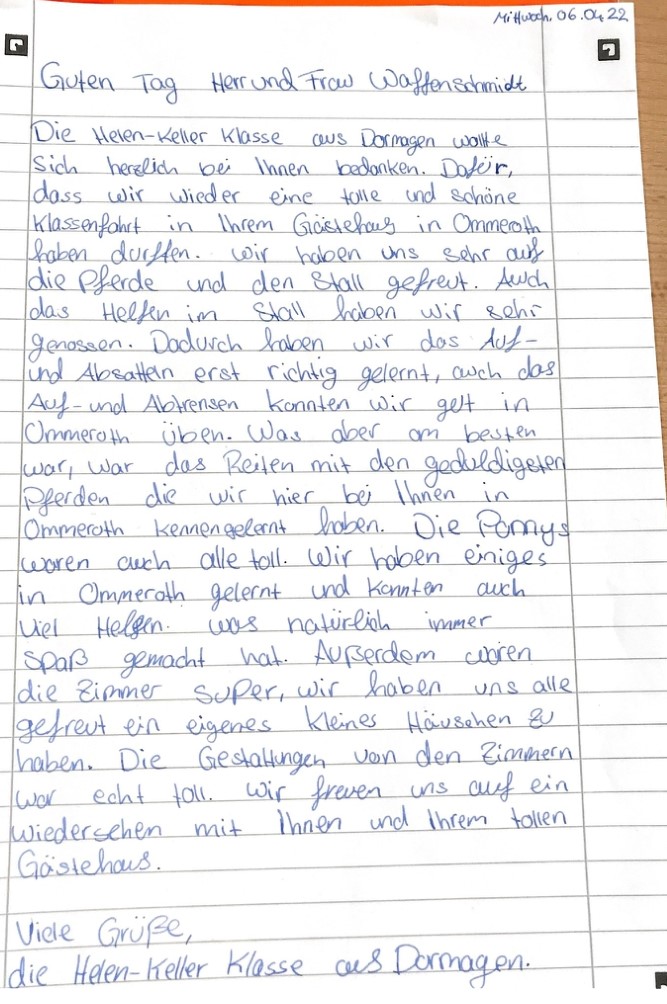 Mittwoch, 06.04.22
Guten Tag Herr und Frau Waffenschmidt
Die Helen-Keller Klasse aus Dormagen wollte
sich herzlich bei Ihnen bedanken. Dafür,
dass wir wieder eine tolle und schöne
Klassenfahrt in Ihrem Gästehaus in Ommeroth
haben durften. Wir haben uns sehr auf
die Pferde und den Stall gefreut. Auch
das Helfen im Stall haben wir sehr
genossen. Dadurch haben wir das Auf-
und Absatteln erst richtig gelernt, auch das
Auf- und Abtrensen konnten wir gut in
Ommeroth üben. Was aber am besten
war, war das Reiten mit den geduldigsten
Pferden die wir hier bei Ihnen in
Ommeroth kennengelernt haben. Die Ponnys
waren auch alle toll. Wir haben einiges
in Ommeroth gelernt und konnten auch
viel Helfen. was natürlich immer
Spaß gemacht hat. Außerdem waren
die Zimmer super, wir haben uns alle
gefreut ein eigenes kleines Häuschen zu
haben. Die Gestaltungen von den Zimmern
war echt toll. Wir freuen uns auf ein
wiedersehen mit Ihnen und Ihrem tollen
Gästehaus.
Viele Grüße,
die Helen-Keller Klasse aus Dormagen.